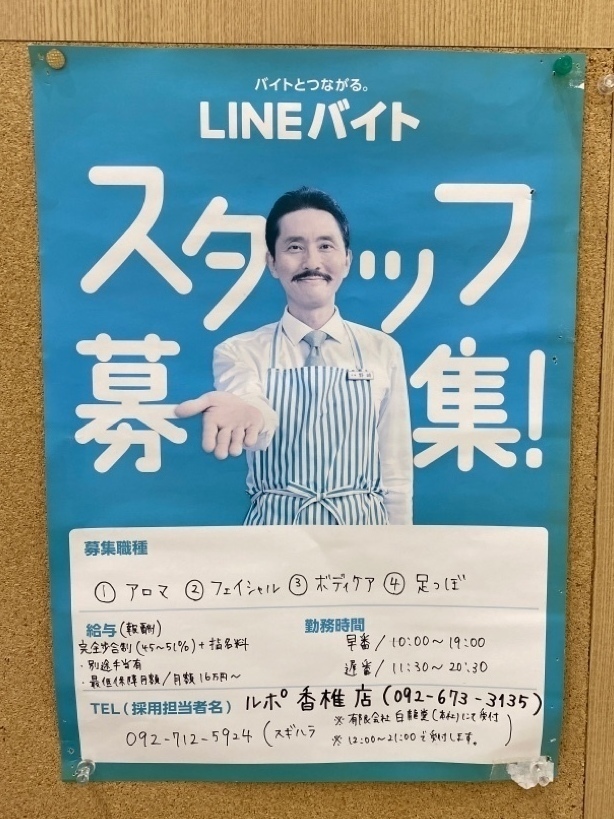 バイトとつながる。
LINEバイト
スタッフ
募集!
募集職種
① アロマ ② フェイシャル ③ ボディケア ④ 足つぼ
給与(報酬)
完全歩合制(45~51%)+指名料
・別途手当有
・最低保障月額/月額16万円~
勤務時間
早番/10:00~19:00
遅番/11:30~20:30
TEL(採用担当者名) ルポ 香椎店(092-673-3135)
092-712-5924(スギハラ
※有限会社 (本社)にて受付
※12:00~21:00で受付します。)